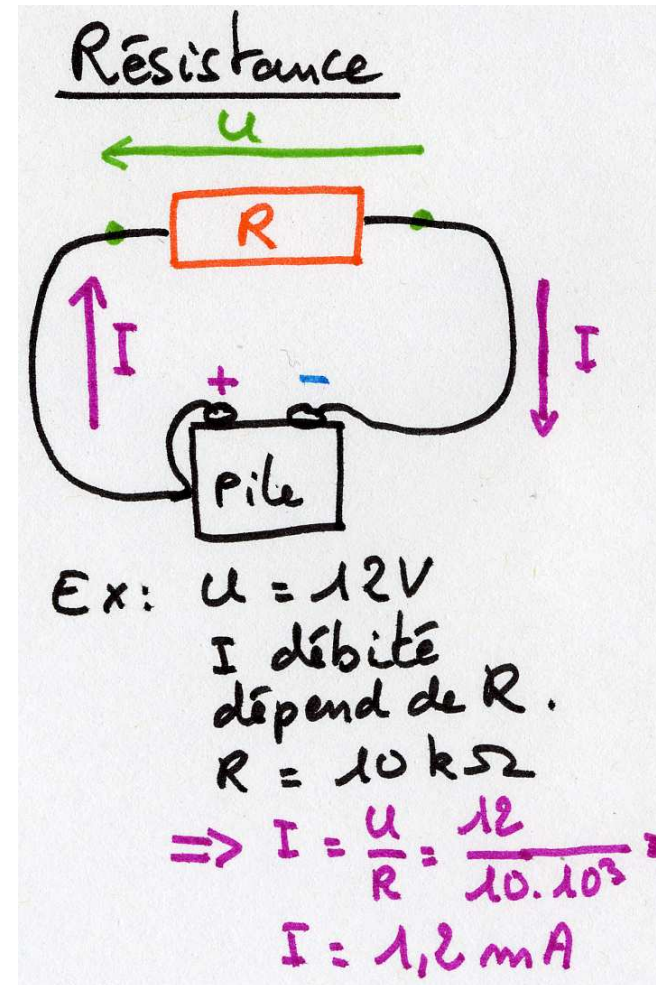 Résistance
U
R
I
I
+ -
Pile
Ex: U = 12V
I débité
dépend de R.
R = 10 kΩ
=> I = U/R = 12/10.10³ =
I = 1,2 mA